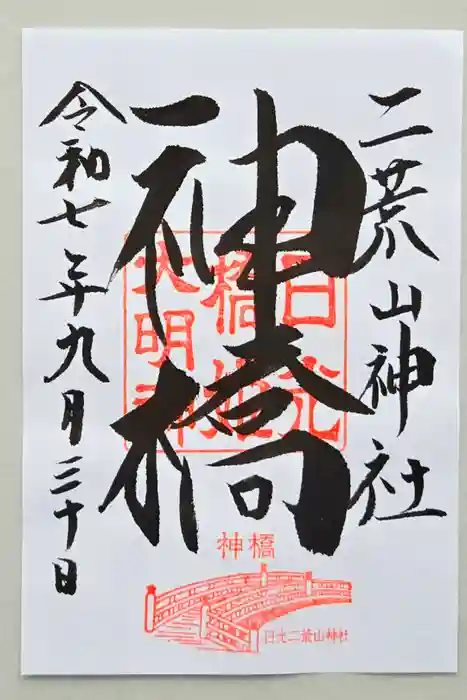 二荒山神社
神橋
日光
橋姫
大明神
令和七年九月三十日
神橋
日光二荒山神社